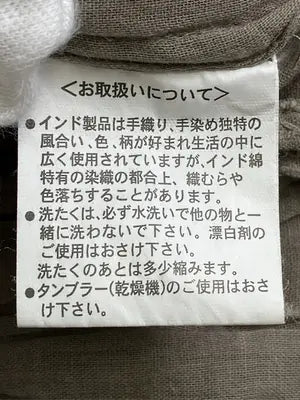 ＜お取扱いについて＞
●インド製品は手織り、手染め独特の
風合い、色、柄が好まれ生活の中に
広く使用されていますが、インド綿
特有の染織の都合上、織むらや
色落ちすることがあります。
●洗たくは、必ず水洗いで他の物と一
緒に洗わないで下さい。漂白剤の
ご使用はおさけ下さい。
洗たくのあとは多少縮みます。
●タンブラー(乾燥機)のご使用はおさ
け下さい。